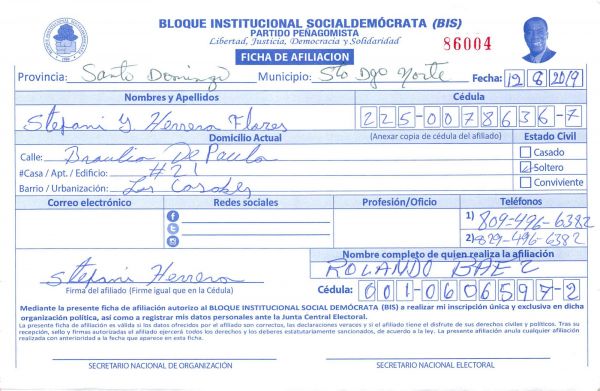 BLOQUE INSTITUCIONAL SOCIALDEMÓCRATA (BIS)
PARTIDO PEÑAGOMISTA
Libertad, Justicia, Democracia y Solidaridad
86004
FICHA DE AFILIACION
Provincia: Santo Domingo Municipio: Sto Dgo Norte Fecha: 12 8 2019
Nombres y Apellidos Cédula
Stefani Y. Herrera Flores 225-0078636-7
Domicilio Actual (Anexar copia de cédula del afiliado) Estado Civil
Calle: Braulio De Paula Casado
#Casa / Apt. / Edificio: #21 Soltero
Barrio / Urbanización: Los Conviviente
Correo electrónico Redes sociales Profesión/Oficio Teléfonos
1) 809-496-6382
2) 829-496-6382
Nombre completo de quien realiza la afiliación
Stefani Herrera ROLANDO BAEZ
Firma del afiliado (Firme igual que en la Cédula) Cédula: 001-0606597-2
Mediante la presente ficha de afiliación autorizo al BLOQUE INSTITUCIONAL SOCIAL DEMÓCRATA (BIS) a realizar mi inscripción única y exclusiva en dicha
organización política, así como a registrar mis datos personales ante la Junta Central Electoral.
La presente ficha de afiliación es válida si los datos ofrecidos por el afiliado son correctos, las declaraciones veraces y si el afiliado tiene el disfrute de sus derechos civiles y políticos. Tras su
recepción, sello y firmas autorizadas el afiliado ejercerá todos los derechos y los deberes estatutariamente sancionados, de acuerdo a la ley. La presente afiliación anula cualquier afiliación
realizada con anterioridad a la fecha que aparece en esta ficha.
SECRETARIO NACIONAL DE ORGANIZACIÓN SECRETARIO NACIONAL ELECTORAL